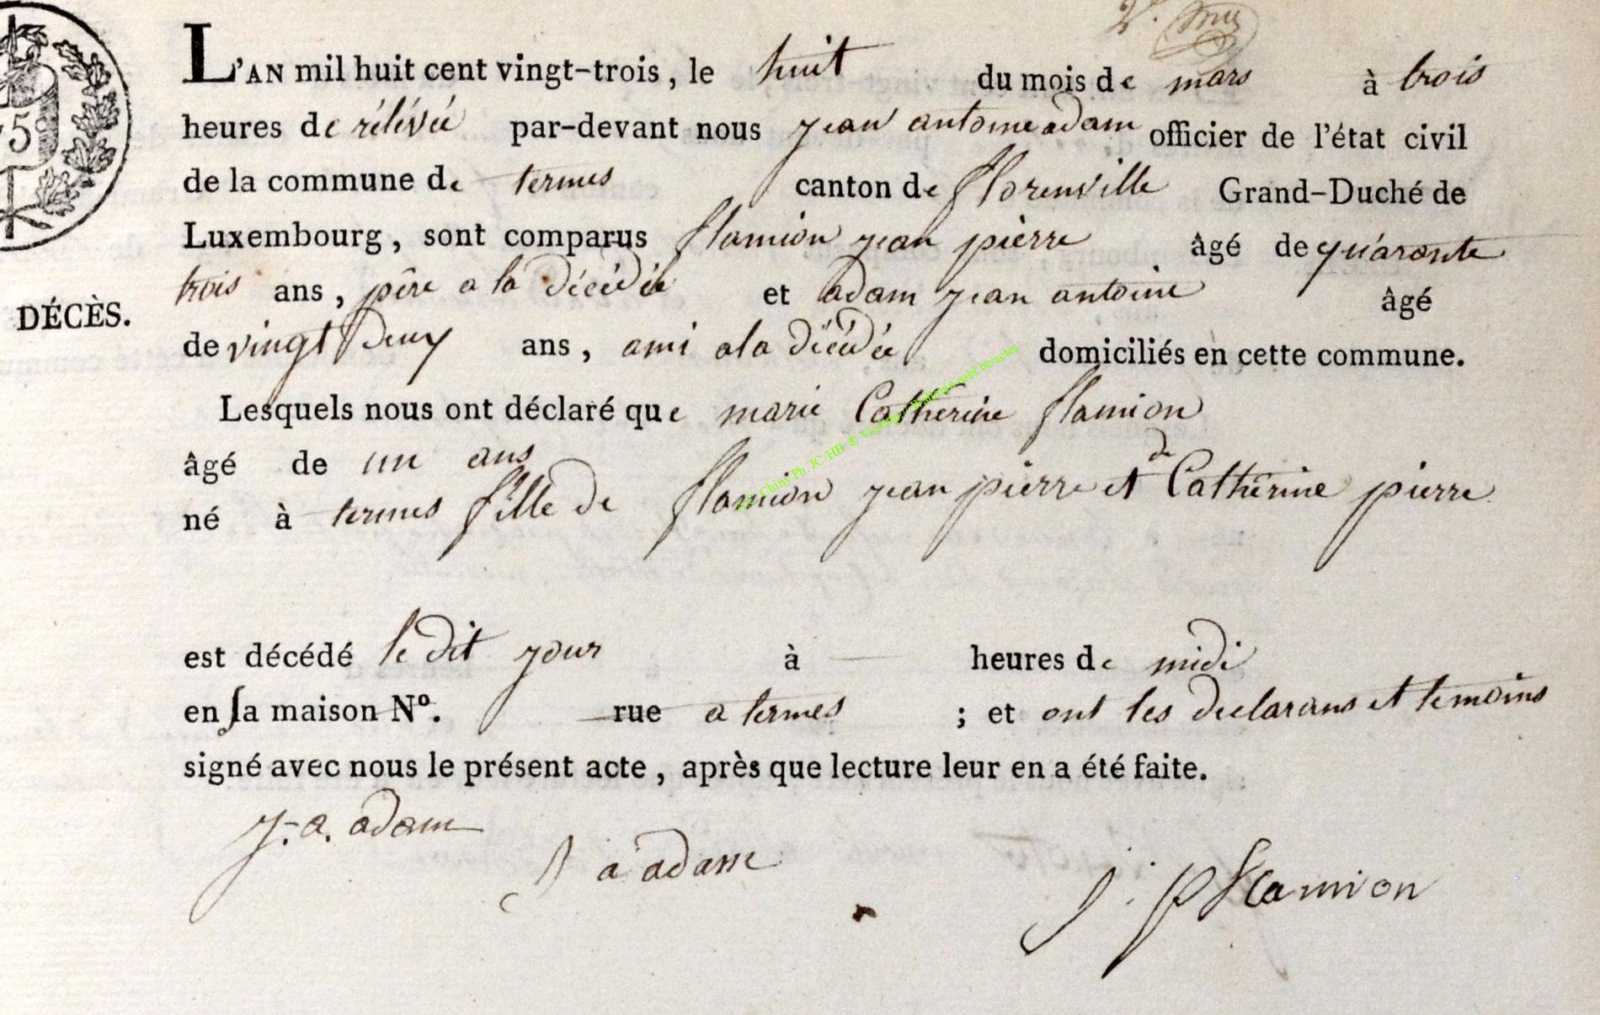 L'AN mil huit cent vingt-trois, le huit du mois de mars à trois
heures de rélévée par-devant nous jean antoine adam officier de l'état civil
de la commune de termes canton de florenville Grand-Duché de
Luxembourg, sont comparus flamion jean pierre âgé de quarante
trois ans, père a la décédée et adam jean antoine âgé
DÉCÈS.
de vingt deux ans, ami a la décédée domiciliés en cette commune.
Lesquels nous ont déclaré que marie Catherine flamion
âgé de un ans
né à termes fille de flamion jean pierre et de Catherine pierre
est décédé le dit jour à heures de midi
en sa maison Nº. rue a termes ; et ont les declarans et temoins
signé avec nous le présent acte, après que lecture leur en a été faite.
j. a. adam
J a adam
j. p flamion